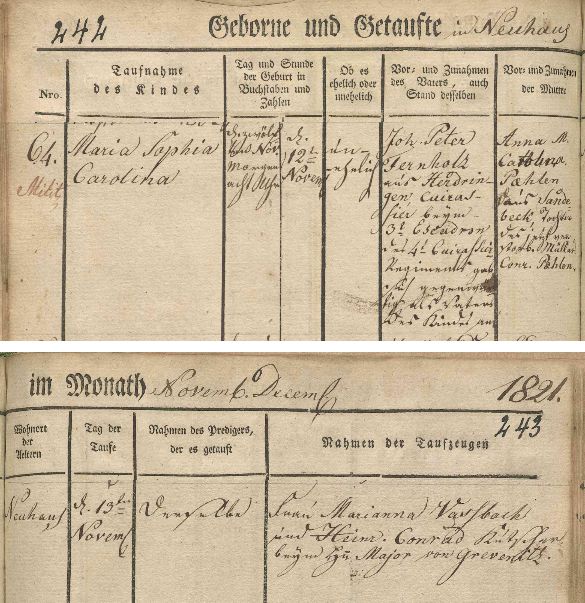 242 Geborne und Getaufte in Neuhaus
Nro.
Taufnahme
des Kindes
Tag und Stunde
der Geburt in
Buchstaben und
Zahlen
Ob es
ehelich oder
unehelich
Vor- und Zunahmen
des Vaters, auch
Stand desselben
Vor- und Zunahmen
der Mutter
64.
Milit
Maria Sophia
Carolina
den zwölf
ten Nov.
Morgens
acht Uhr
d.
12ten
Novem
un-
ehelich
Joh. Peter
Fernholz
aus Herdrin-
gen, Cuiras-
sier beym
3t Escadron
des 4t Cuirassier
Regiments gab
sich gegenwär-
tig als Vater
des Kindes an
Anna M.
Carolina
Pæhlen
aus Sande
beck Tochter
des
storb. Müller
Conr. Pæhlen.
im Monath Novemb. Decemb 1821.
243
Wohnort
der
Aeltern
Tag der
Taufe
Nahmen des Predigers,
der es getauft
Nahmen der Taufzeugen
Neuhaus
d. 13ten
Novem
Derselbe
Frau Marianna Vassbach
und Heinr. Conrad Kutscher
beym Hn Major von Grevenitz.